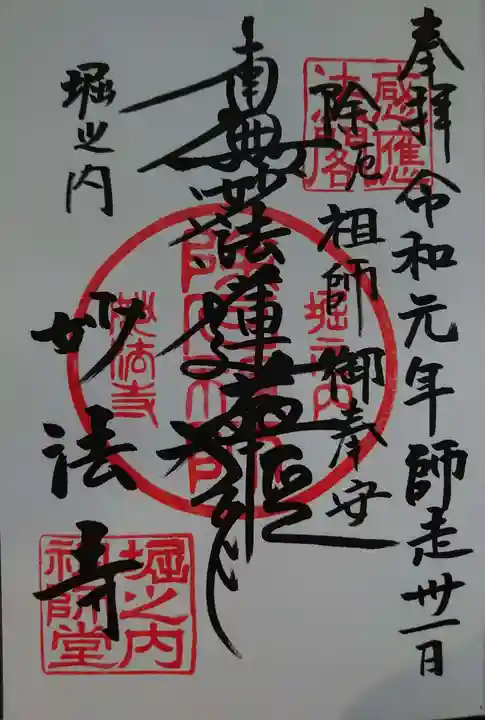 奉拝 令和元年師走丗一日
除厄祖師御奉安
南無妙法蓮華経
堀之内
妙法寺
感應
法閣
堀之内
妙法寺
堀之内
祖師堂